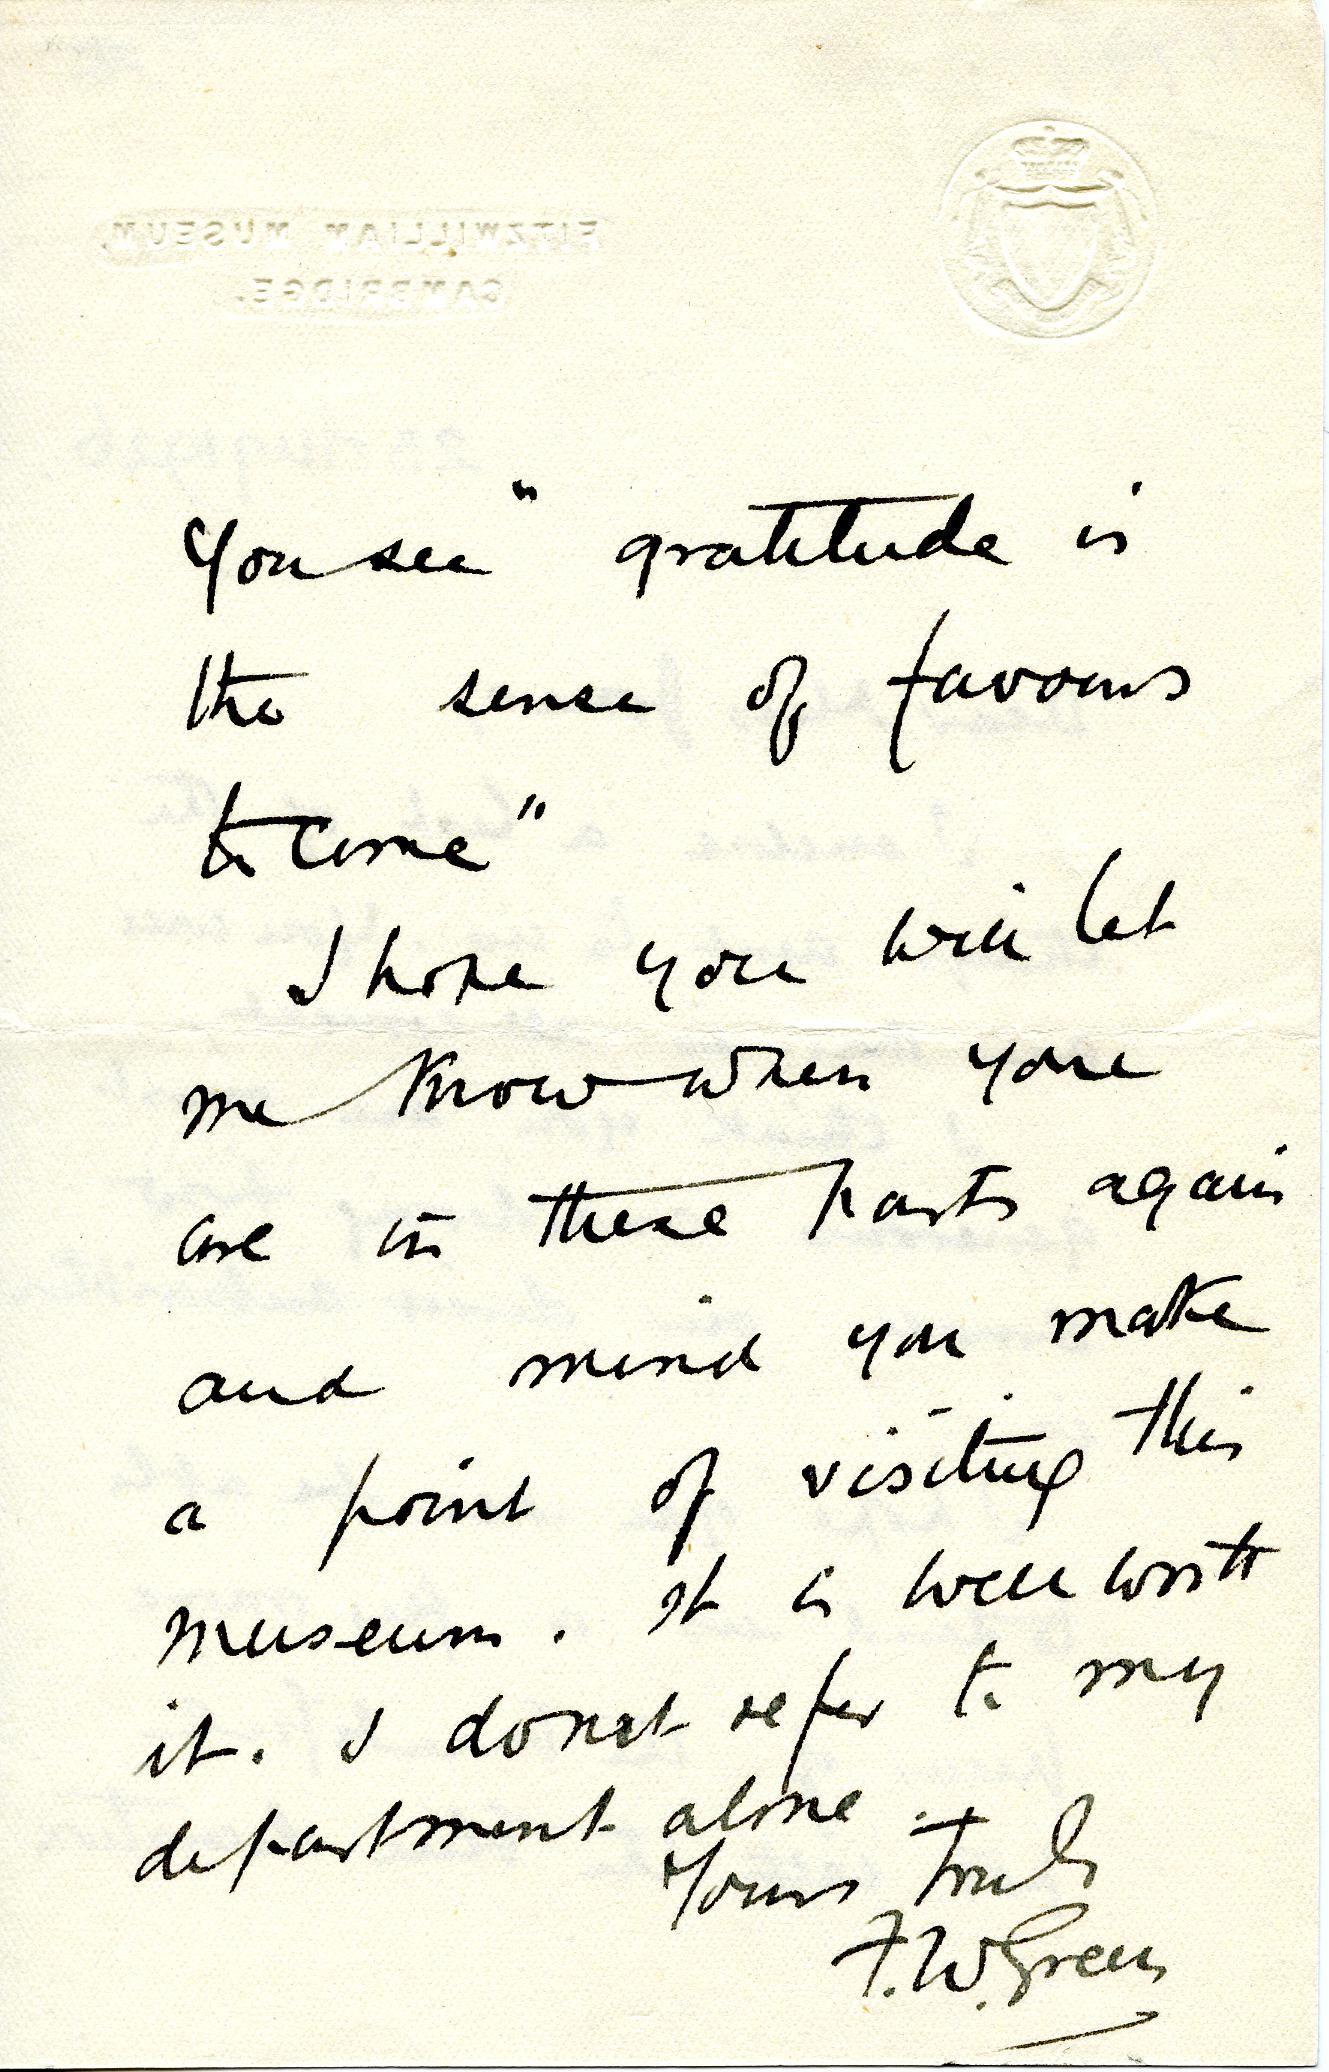 FITZWILLIAM MUSEUM,
CAMBRIDGE.
You see " gratitude is
the sense of favours
to come"
I hope you will let
me know when you
are in these parts again
and mind you make
a point of visiting this
museum. It is well worth
it. I do not refer to my
department alone.
Yours truly
F. W. Green